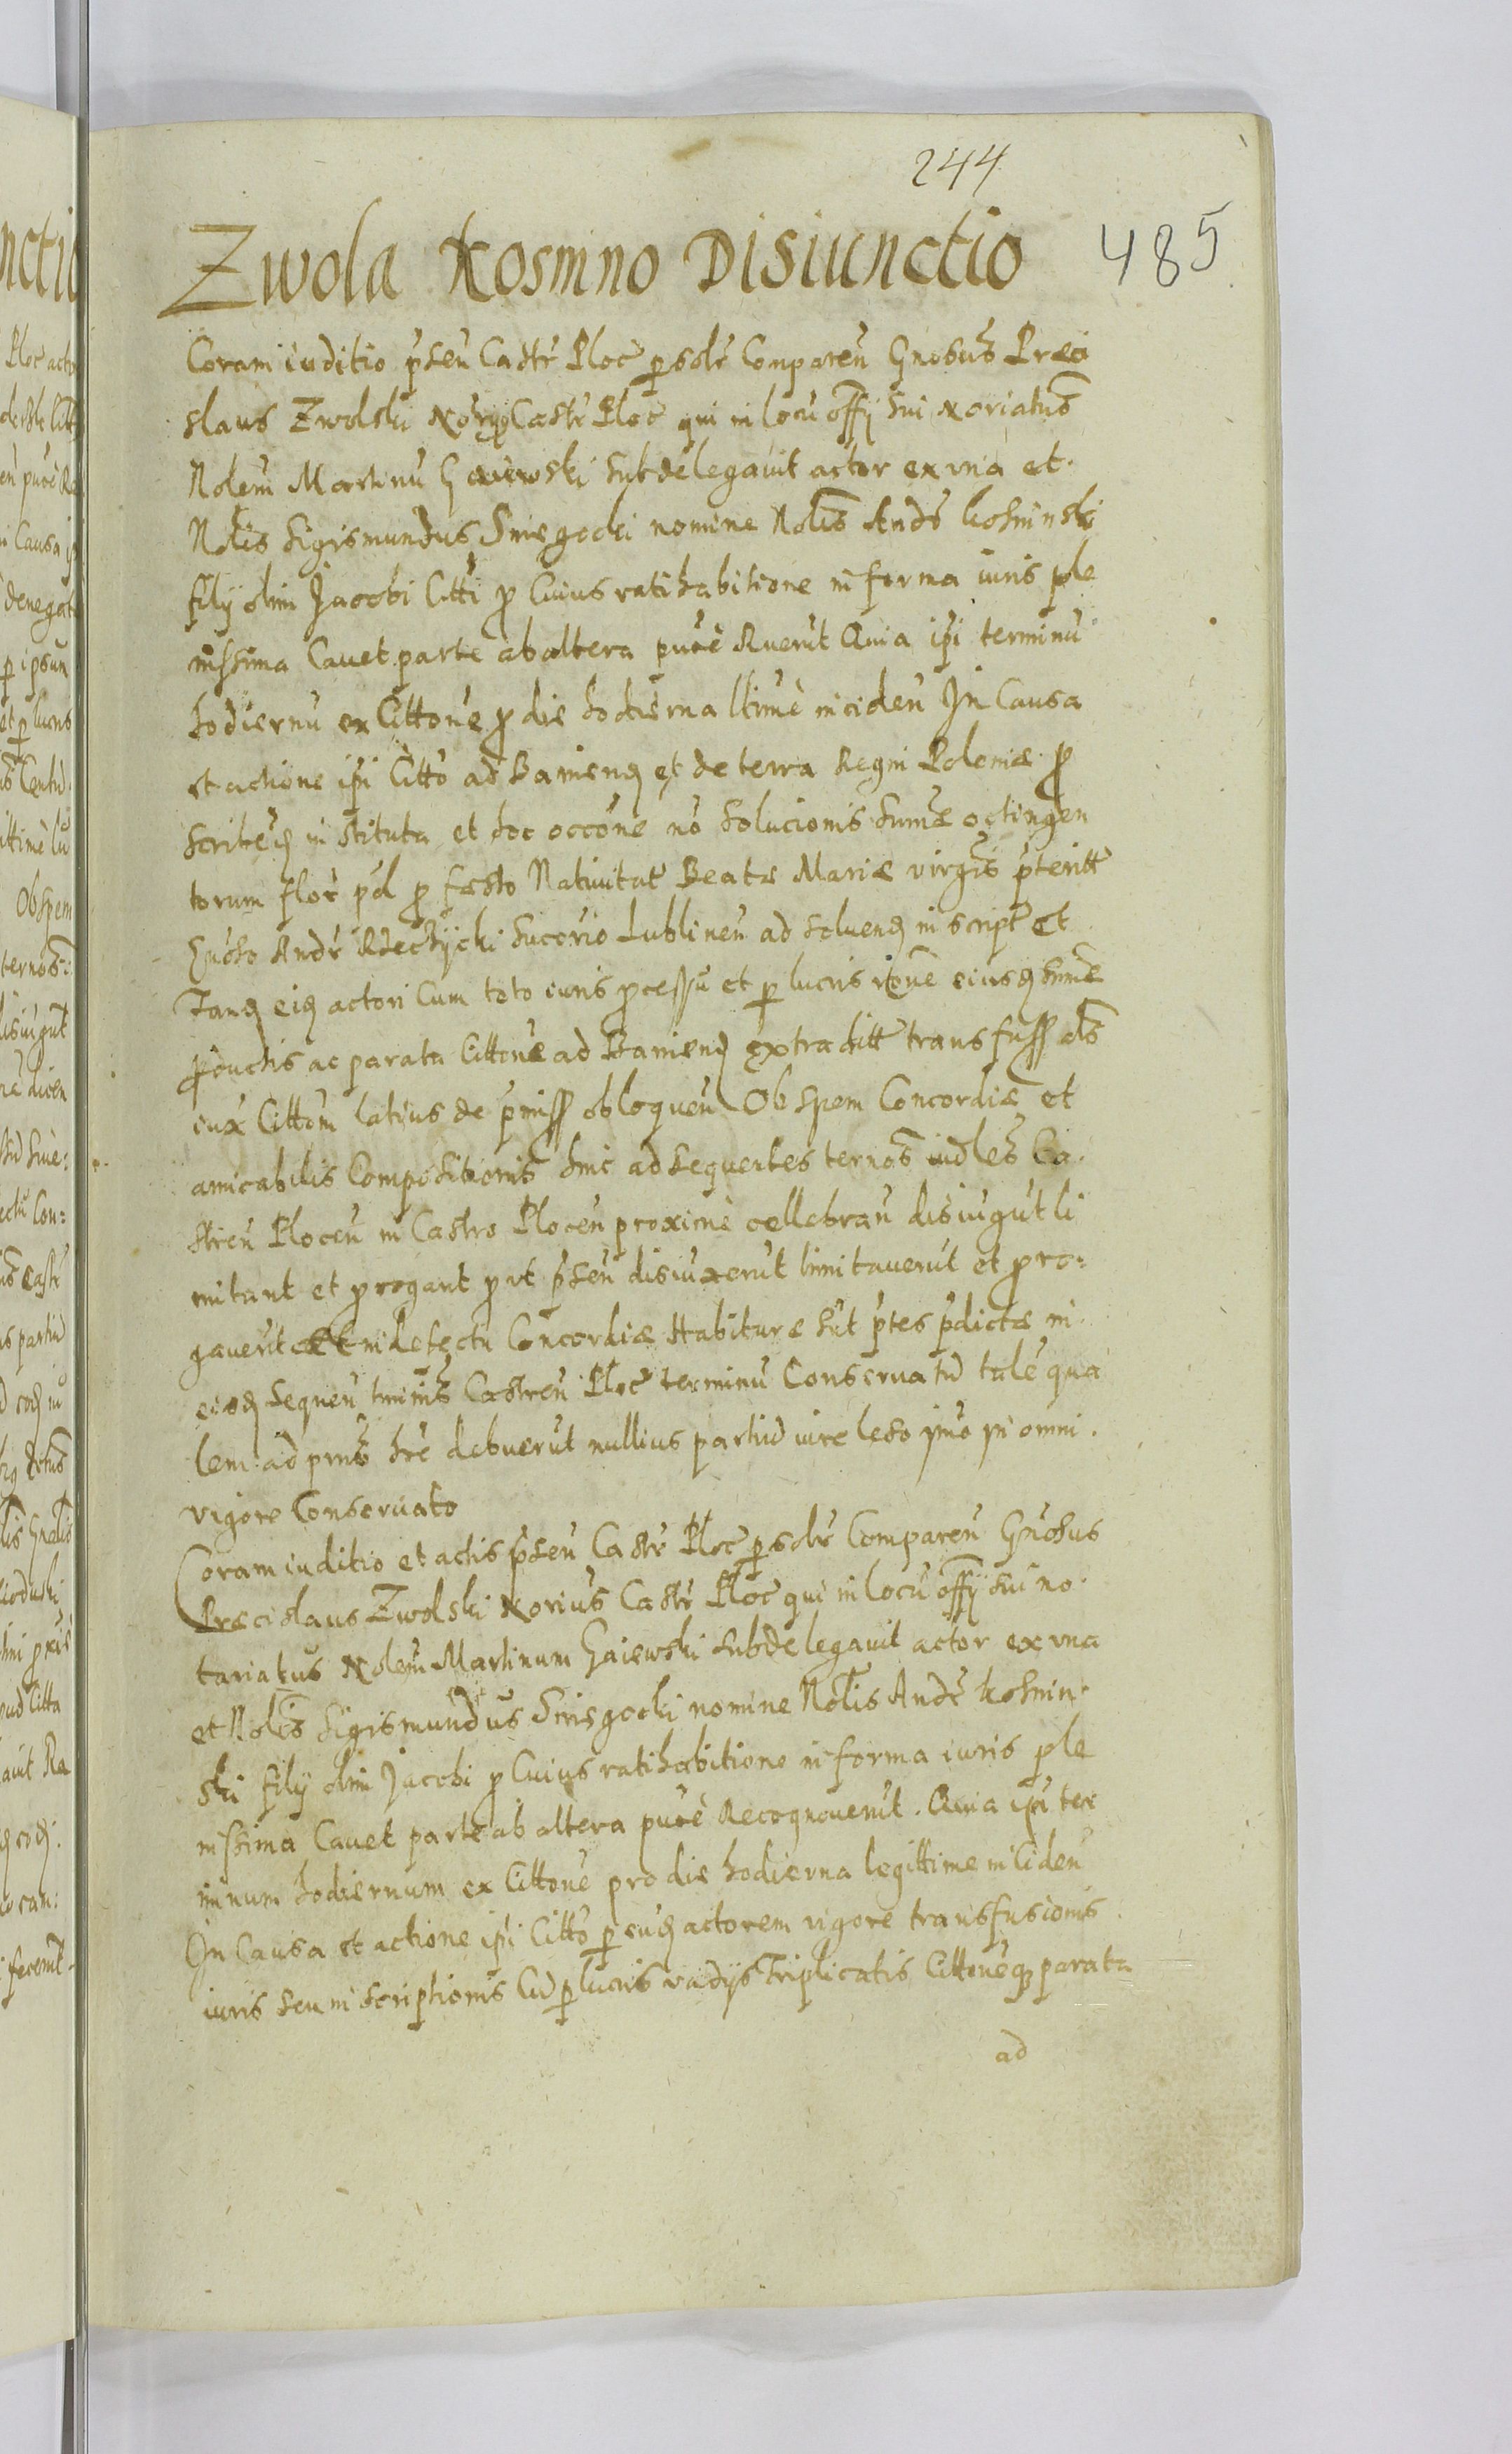 244
485
Zwola Kosmino Disiunctio
Coram iuditio pñseñ Castr Ploc psolr Compareñ Gnosus Preci
slaus Zwolski Castr Ploc qui in locu offy sui Noriatus
Nolem Martinu Gaiewski subdelegavit actor ex vna et
Nolis Sigismundus Snisgocki nomine Nolis Andr kosminski
fily olim Jacobi Citti p Cuius ratihabitione in forma iuris ple
nissima Cavet parte ab altera pure Ruerut Quia ipi terminu
hodiernu ex Cittone p die hodierna lltime incideñ In Causa
et actione ipi Citto ad Baniend et de terra Regni Poloniæ p
scribed instituta et hoc occone no solucionis sumæ octingen
torum floc pol p festo Nativitat Beatæ Mariæ virgis pteritt
Gnoso Andr succrio Lublineñ ad soluend inscript et
Tand eid actori Cum toto iuris pcessu et p lucris rone eiusd sumæ
pductis ac parata Cittone ad Baniend extraditt transfuss als
iux Cittom latius de pmiss obloqueñ Ob spem Concordiæ et
amicabilis Compositionis hinc ad sequentes ternos iudles Ca
streñ Ploceñ in Castro Ploceñ proxime cellebrañ disiugut li
mitant et progant put pseñ disiuxerut limitaverut et pro=
gaverut Et in defectu Concordiæ Habituræ sut ptes pdictæ in
eisd sequeñ tminis Castreñ Ploc terminu Conservatu tale qua
lem ad pns hre debuerut nullius partiu iure leso ymo in omni
vigore Conservato
Coram iuditio et actis pseñ Castr Ploc psolr Compareñ Gnosus
Precislaus Zwolski Norius Castr Ploc qui in locu offy sui no
tariatus Nolem Martinum Gaiewski subdelegavit actor ex vna
et Nolis Sigismundus Snisgocki nomine Nolis Andr kosmin
ski fily olim Jacobi p Cuius ratihabitione in forma iuris ple
nissima Cavet parte ab altera pure Recognoverut. Quia ipi ter
minum hodiernum ex Cittone pro die hodierna legittime incideñ
In Causa et actione ipi Citto p eud actorem vigore transfusionis
iuris seu inscriptionis Cu plucris vadys Triplicatis Cittoneq parata
ad